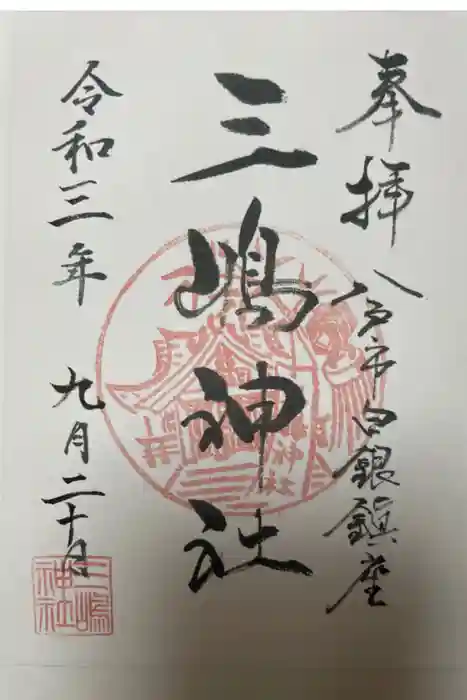 奉拝
八戸市白銀鎮座
三嶋神社
令和三年
九月二十日
三嶋
神社